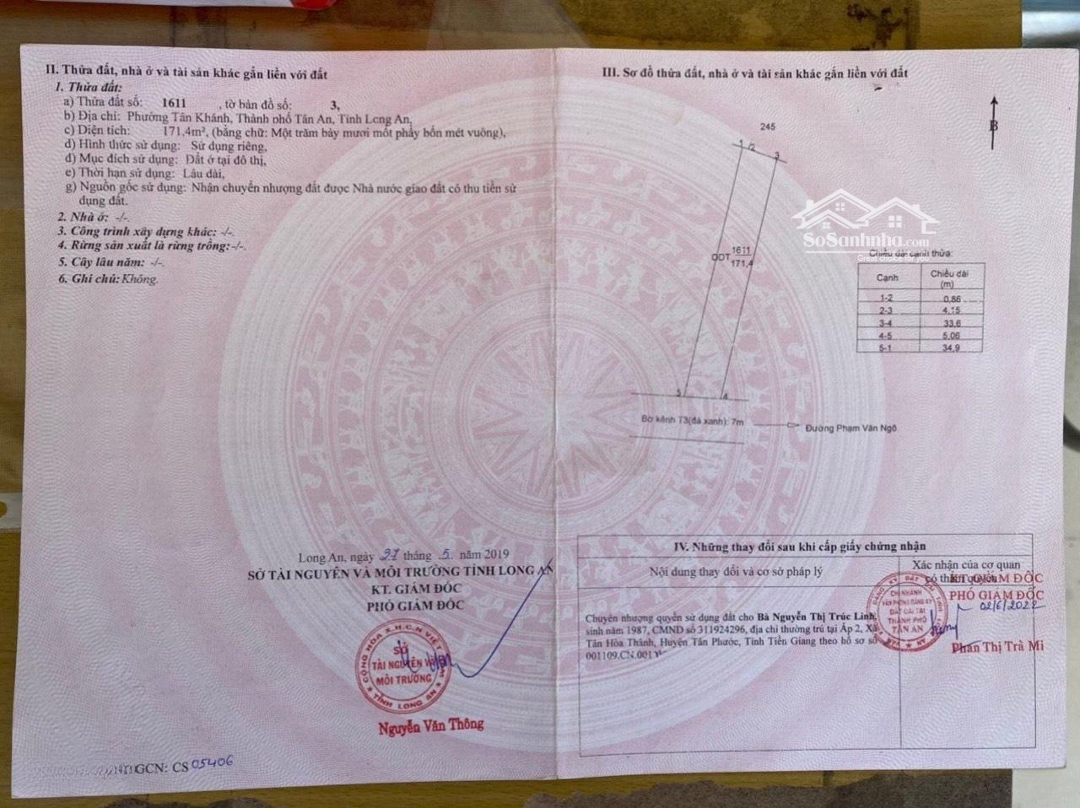 II. Thửa đất, nhà ở và tài sản khác gắn liền với đất
1. Thửa đất:
a) Thửa đất số: 1611 , tờ bản đồ số: 3,
b) Địa chỉ: Phường Tân Khánh, Thành phố Tân An, Tỉnh Long An,
c) Diện tích: 171,4m², (bằng chữ: Một trăm bảy mươi mốt phẩy bốn mét vuông),
d) Hình thức sử dụng: Sử dụng riêng,
đ) Mục đích sử dụng: Đất ở tại đô thị,
e) Thời hạn sử dụng: Lâu dài,
g) Nguồn gốc sử dụng: Nhận chuyển nhượng đất được Nhà nước giao đất có thu tiền sử
dụng đất.
2. Nhà ở: -/-.
3. Công trình xây dựng khác: -/-.
4. Rừng sản xuất là rừng trồng: -/-.
5. Cây lâu năm: -/-.
6. Ghi chú: Không.
Long An, ngày 27 tháng 5 năm 2019
SỞ TÀI NGUYÊN VÀ MÔI TRƯỜNG TỈNH LONG AN
KT. GIÁM ĐỐC
PHÓ GIÁM ĐỐC
CỘNG HÒA X.H.C.N VIỆT NAM
SỞ
TÀI NGUYÊN VÀ
MÔI TRƯỜNG
TỈNH LONG AN
Nguyễn Văn Thông
GCN: CS 05406
III. Sơ đồ thửa đất, nhà ở và tài sản khác gắn liền với đất
B
245
1
2
3
ODT 1611
171,4
5
4
Bờ kênh T3(đá xanh): 7m
Đường Phạm Văn Ngô
SoSanhnha.com
Chiều dài cạnh thửa:
Cạnh Chiều dài
(m)
1-2 0,86
2-3 4,15
3-4 33,6
4-5 5,06
5-1 34,9
IV. Những thay đổi sau khi cấp giấy chứng nhận
Nội dung thay đổi và cơ sở pháp lý
Xác nhận của cơ quan
có thẩm quyền
KT. GIÁM ĐỐC
PHÓ GIÁM ĐỐC
02/6/2022
Chuyển nhượng quyền sử dụng đất cho Bà Nguyễn Thị Trúc Linh,
sinh năm 1987, CMND số 311924296, địa chỉ thường trú tại Ấp 2, Xã
Tân Hòa Thành, Huyện Tân Phước, Tỉnh Tiền Giang theo hồ sơ số
001109.CN.001
CHI NHÁNH
VĂN PHÒNG ĐĂNG KÝ
ĐẤT ĐAI TẠI
THÀNH PHỐ
TÂN AN
Phan Thị Trà Mi